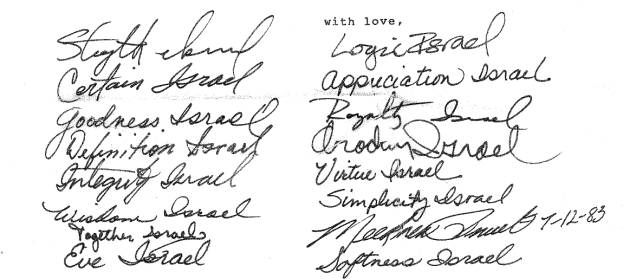 Israel
Certain Israel
Goodness Israel
Definition Israel
Integrity Israel
Wisdom Israel
Together Israel
Eve Israel
with love,
Logic Israel
Appreciation Israel
Royalty Israel
Israel
Virtue Israel
Simplicity Israel
7-12-83
Softness Israel